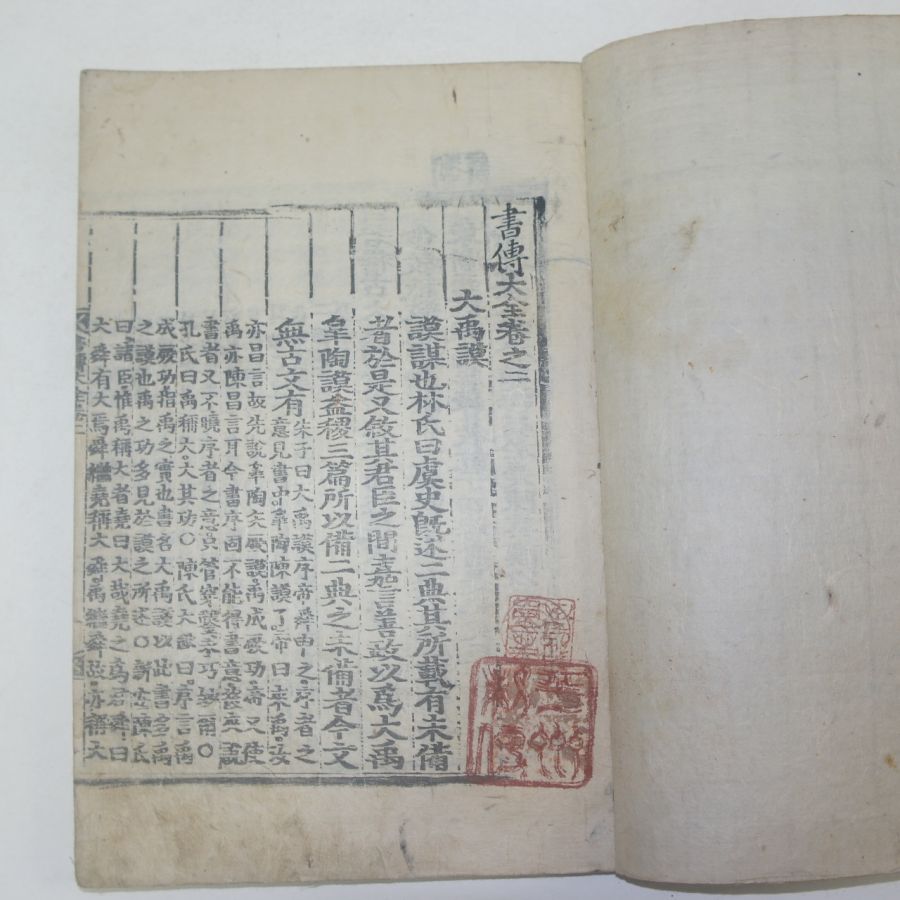 書傳大全卷之二
大禹謨
謨謀也林氏曰虞史旣述二典其所載有未備
者於是又敘其君臣之間嘉言善政以爲大禹
皐陶謨益稷三篇所以備二典之未備者今文
無古文有
朱子曰大禹謨序帝舜申之序者之
意見書中皐陶陳謨了帝曰來禹汝
亦昌言故先說皐陶矢厥謨禹成厥功帝又使
禹亦陳昌言耳今書序固不能得書意後來說
書者又不曉序者之意只管穿鑿求巧妙爾○
孔氏曰禹稱大大其功○陳氏大猷曰序言禹
成厥功指禹之實也書名大禹謨以此書多禹
之謨也禹之功多見於謨之所述○新安陳氏
曰諸臣惟禹稱大者堯曰大哉堯之爲君舜曰
大舜有大焉舜繼堯稱大舜禹繼舜故亦稱大